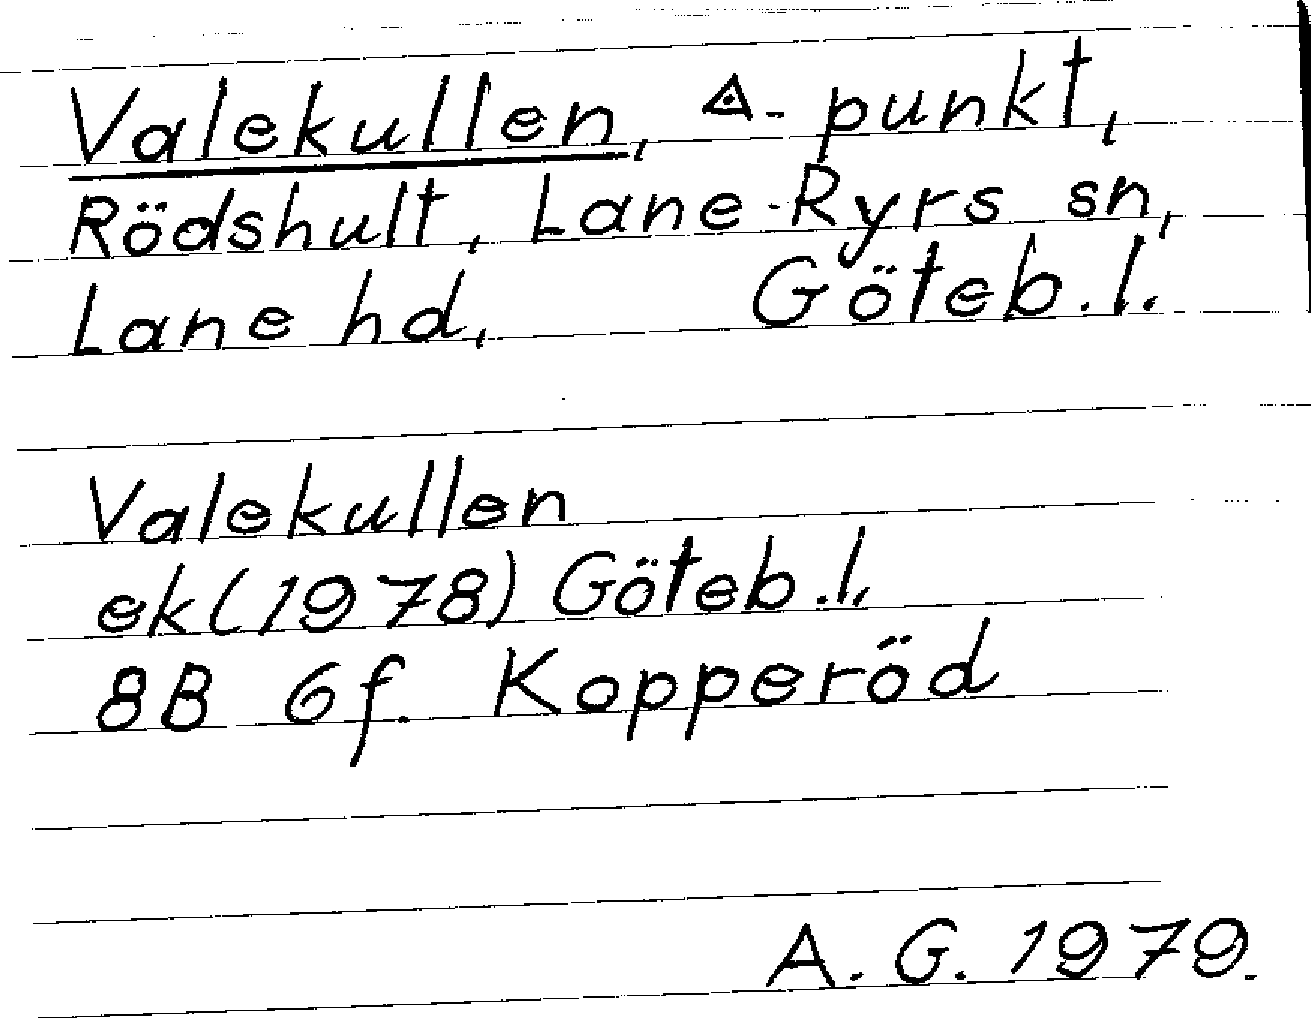 Valekullen, ◬-punkt,
Rödshult, Lane-Ryrs sn,
Lane hd, Göteb.l.
Valekullen
ek(1978) Göteb.l.
8B 6f. Kopperöd
A. G. 1979.